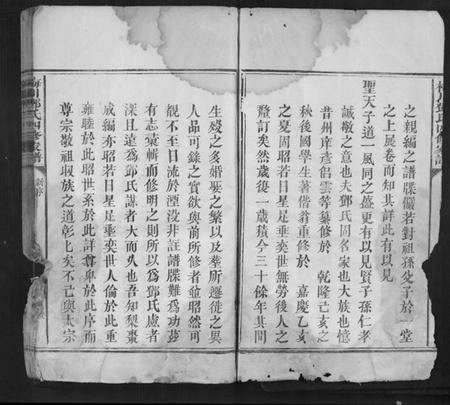 之親編之譜牒儼若對祖孫父子於一堂
之上展卷而知其詳此有以見
聖天子道一風同之盛更有以見賢子孫仁孝
誠敬之意也夫鄧氏固名家也大族也憶
昔州庠彥侶雲等纂修於 乾隆己亥之
秋後國學生著偕翁重修於 嘉慶乙亥
之夏固昭若日星足垂奕世無勞後人之
釐訂矣然歲復一歲積今三十餘年其間
生殁之多婚娶之繁以及塋所遷徙之異
人品可錄之實欲與前所修者並昭然可
觀不至日流於湮沒非註譜牒難爲功茲
有志彙輯而修明之則所以爲鄧氏慮者
深且遠爲鄧氏謀者大而久也吾知梨棗
成編亦昭若日星足垂奕世人倫於此重
雍睦於此昭世系於此詳尊卑於此序而
尊宗敬祖收族之道彰匕矣不已與太宗
鄧氏四修家譜